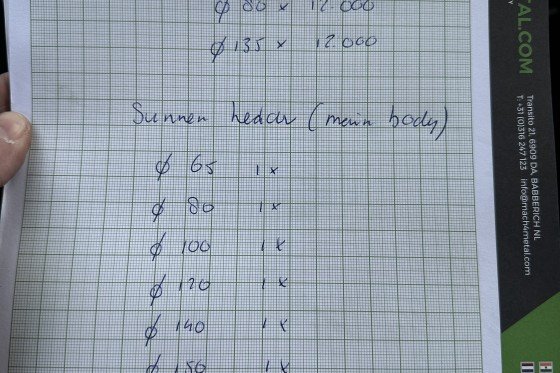 ϕ 80 x 12.000
ϕ 135 x 12.000
Sunnen header (main body)
ϕ 65 1 x
ϕ 80 1 x
ϕ 100 1 x
ϕ 120 1 x
ϕ 140 1 x
ϕ 150 1 x
TAL.COM
Transito 21, 6909 DA, BABBERICH NL
T: +31 (0)316 247 123 info@mach4metal.com